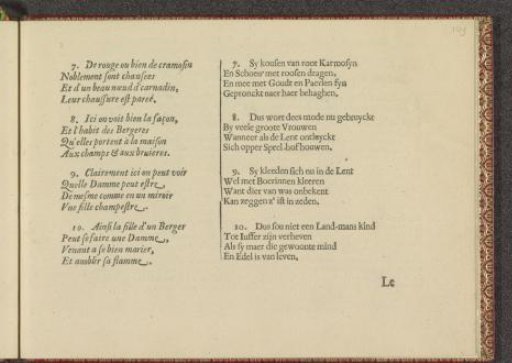 7. De rouge ou bien de cramosin
Noblement sont chausees
Et d'un beau nœud d'carnadin,
Leur chaussure est paree.
8. Ici on voit bien la façon,
Et l'habit des Bergeres
Qu'elles portent à la maison
Aux champs & aux bruieres.
9. Clairement ici on peut voir
Quelle Damme peut estre,
De mesme comme en un miroir
Vne fille champestre.
10. Ainsi la fille d'un Berger
Peut se faire une Damme,
Venant a se bien marier,
Et anoblir sa flamme.
7. Sy kousen van root Karmosyn
En Schoen' met roosen dragen,
En mee met Goudt en Paerlen fyn
Gepronckt naer haer behaghen.
8. Dus wort dees mode nu gebruycke
By veele groote Vrouwen
Wanneer als de Lent ontluyckt
Sich opper Speel-hof houwen.
9. Sy kleeden sich nu in de Lent
Wel met Boerinnen kleeren
Want dier van was onbekent
Kan zeggen z' ist in zeden.
10. Dus sou niet een Land-mans kind
Tot Iuffer zijn verheven
Als sy maer die gewoonte mind
En Edel is van leven.
Le